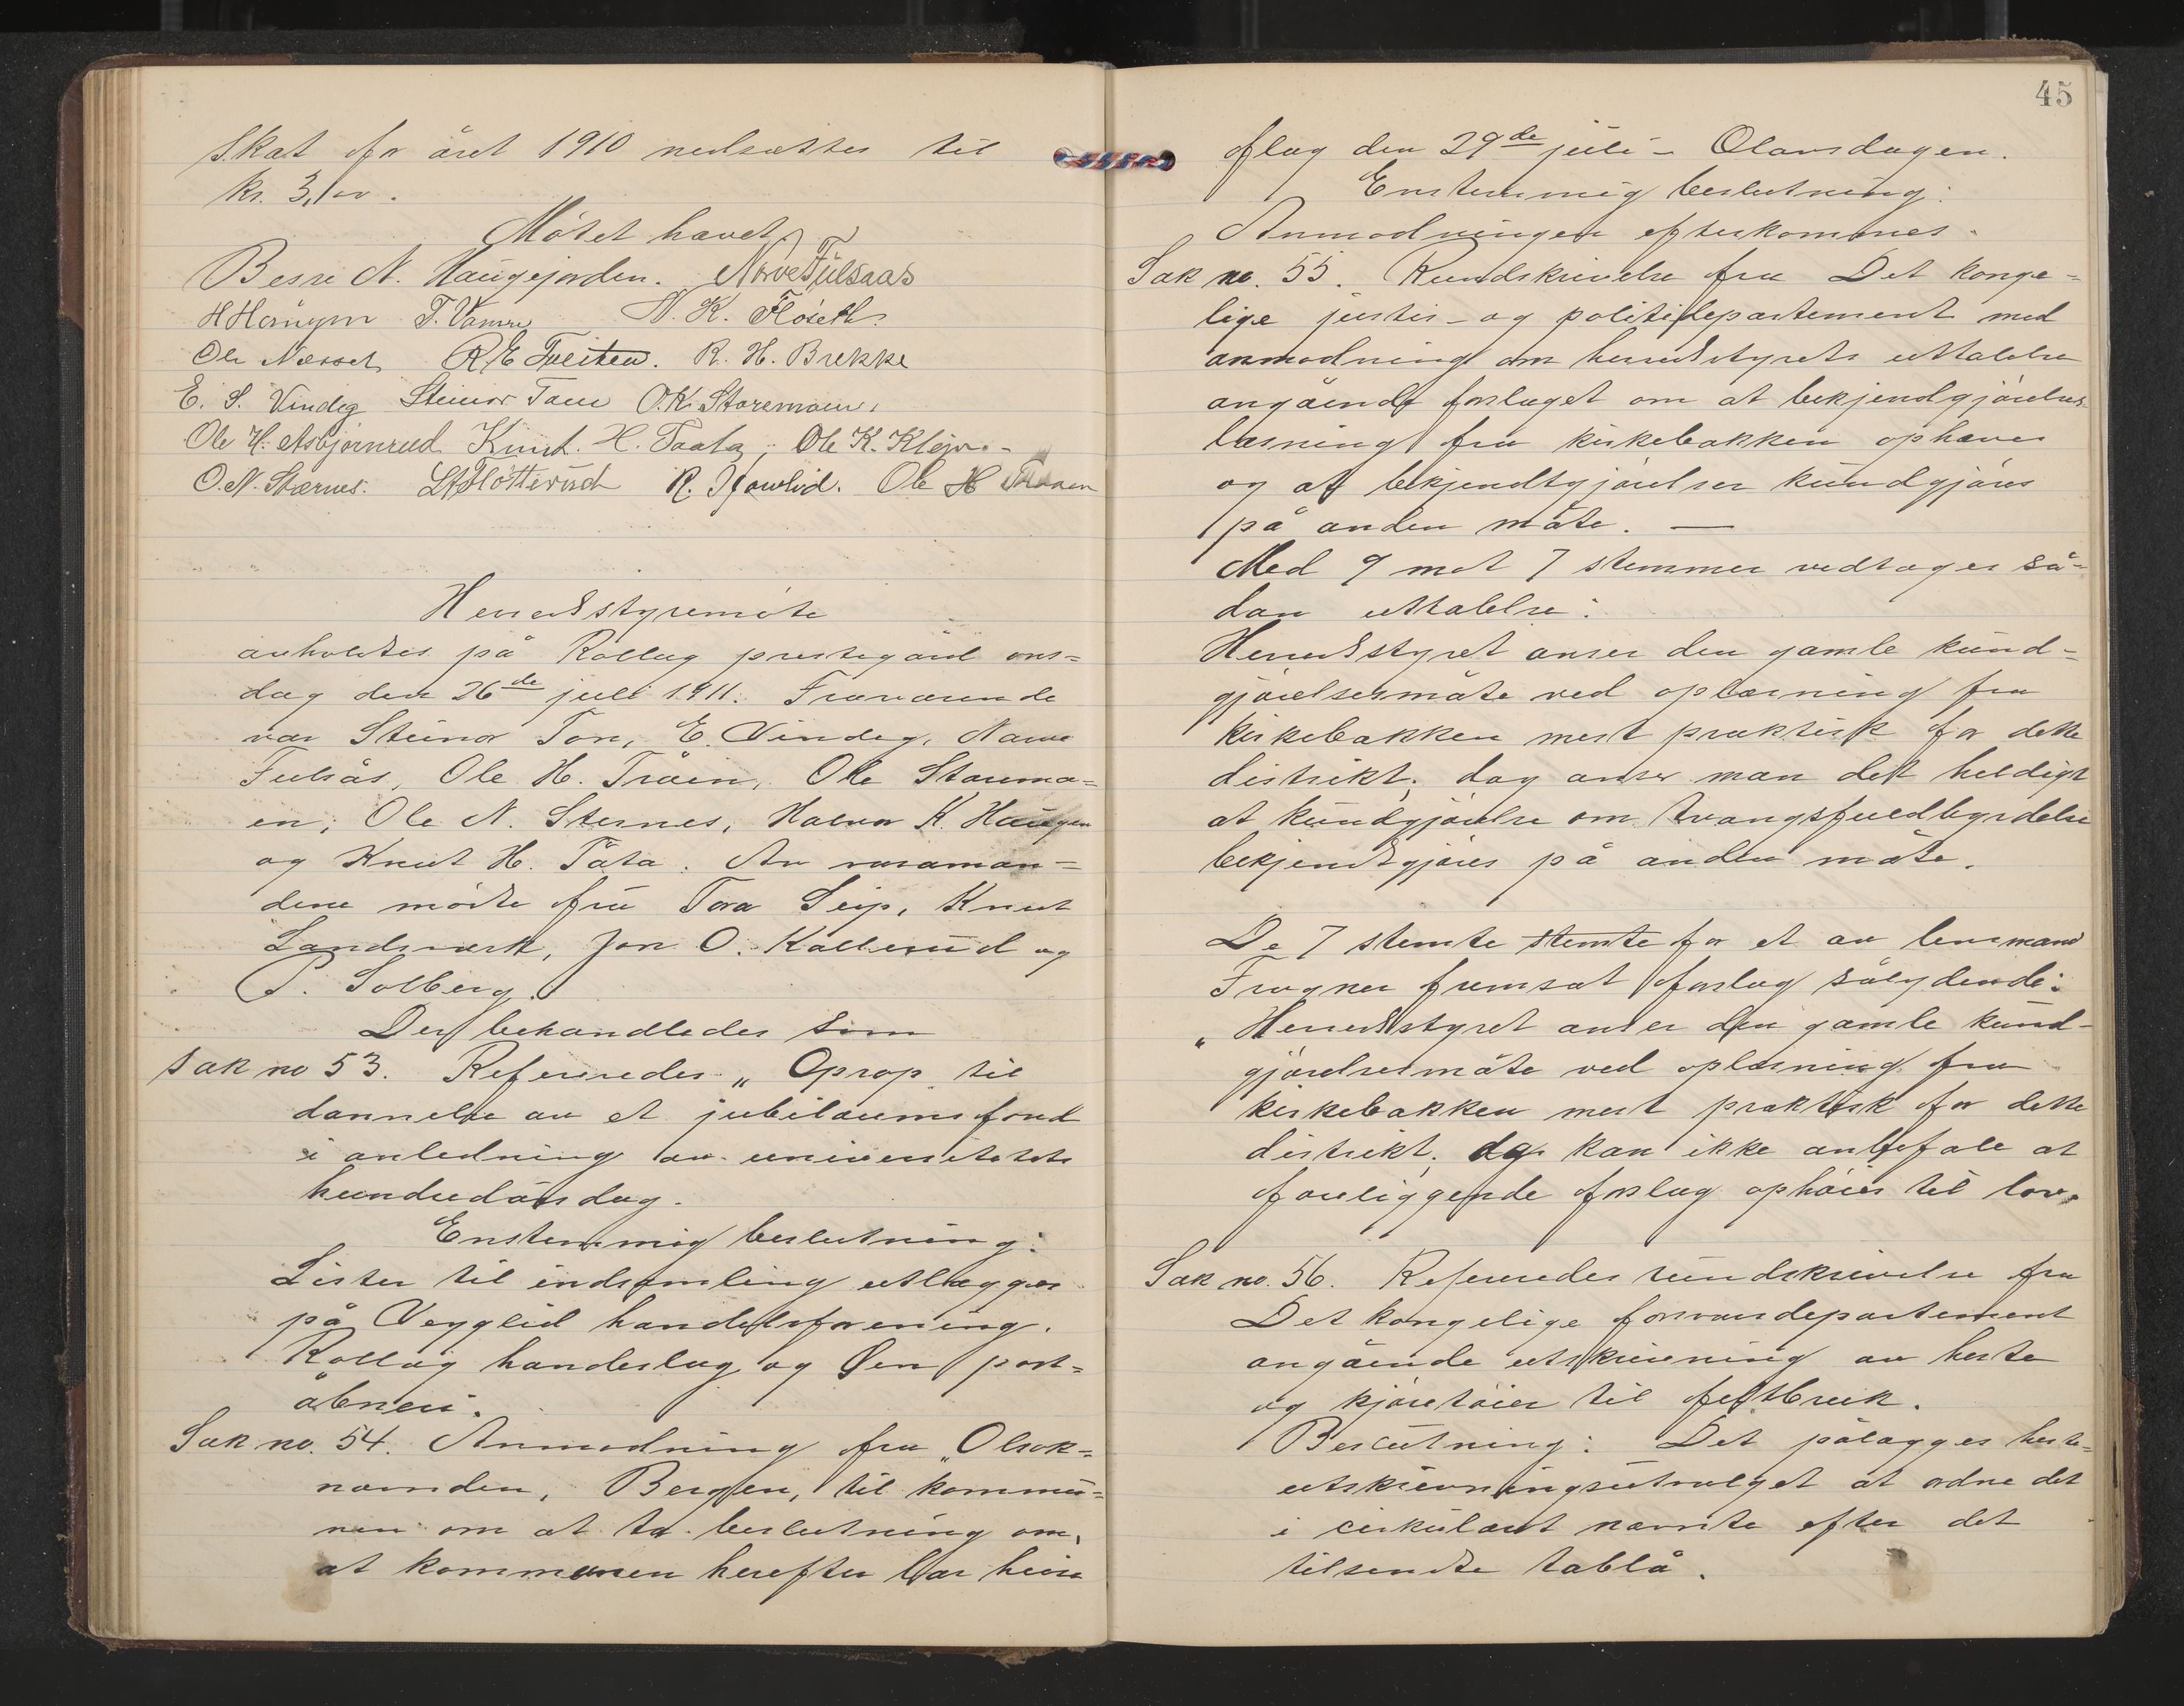 skat for året 1910 nedsættes til
kr. 3,00.
Møtet hævet.
Besse N. Haugejorden. Narve Fulsaas
H Haugen T. Vamre N. K. Fløseth.
Ole Næsset R E Tveiten. R. H. Brekke
E. S. Vindeg Steinar Toen O. K. Storemoen,
Ole H. Asbjørnrud Knut. H. Taata, Ole K. Klejv
O. N. Stærnes. Ole H Traaen
Herredstyremøte
avholdtes på Rollag prestegård ons=
dag den 26de juli 1911. Fraværende
var Steinar Ton, E. Vindeg, Narve
Fulsås, Ole H. Tråen, Ole Storemo=
en, Ole N. Sternes, Halvor K. Haugen
og Knut H. Tåta. Av varaman=
dene møtte fru Tora Seip, Knut
Landsverk, Jon O. Kallerud og
P. Solberg.
Der behandledes som
Sak no 53. Refereredes „Oprop til
dannelse av et jubilæumsfond
i anledning av universitetets
hundredårsdag.
Enstemmig beslutning:
Lister til indsamling utlægges
på Vegglid handelsforening.
Rollag handelslag og Øen post=
åbneri.
Sak no. 54. Anmodning fra „Olsok=
nemnden, Bergen, til kommu=
nen om at ta beslutning om,
at kommunen herefter lar heise
45
flag den 29de juli – Olavsdagen.
Enstemmig beslutning:
Anmodningen efterkommes.
Sak no. 55. Rundskrivelse fra Det konge=
lige justis- og politidepartement med
anmodning om herredstyrets uttalelse
angående forslaget om at bekjendtgjørelses
læsning fra kirkebakken ophæves
og at bekjendtgjørelser kundgjøres
på anden måte. —
Med 9 mot 7 stemmer vedtages så=
dan uttalelse:
Herredstyret anser den gamle kund=
gjørelsesmåte ved oplæsning fra
kirkebakken mest praktisk for dette
distrikt, dog anser man det heldigt
at kundgjørelse om tvangsfuldbyrdelse
bekjendtgjøres på anden måte.
De 7 stemte stemte for et av lensmand
Frogner fremsat forslag sålydende:
„Herredstyret anser den gamle kund-
gjørelsesmåte ved oplæsning fra
kirkebakken mest praktisk for dette
distrikt, og kan ikke anbefale at
foreliggende forslag ophøies til lov.
Sak no. 56. Refereredes rundskrivelse fra
Det kongelige forsvarsdepartement
angående utskrivning av heste
og kjøretøier til feltbruk.
Beslutning: Det pålægges heste=
utskrivningsutvalget at ordne det
i cirkulæret nævnte efter det
tilsendte tablå.